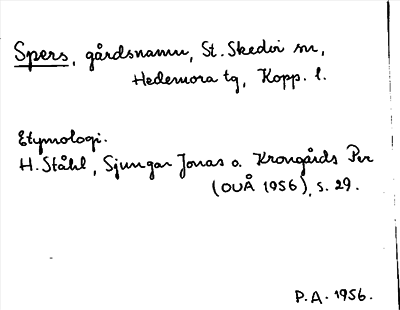 Spers, gårdsnamn, St. Skedvi sn,
Hedemora tg, Kopp. l.
Etymologi.
H. Ståhl, Sjungar Jonas o. Krongårds Per
(OUÅ 1956), s. 29.
P.A. 1956.